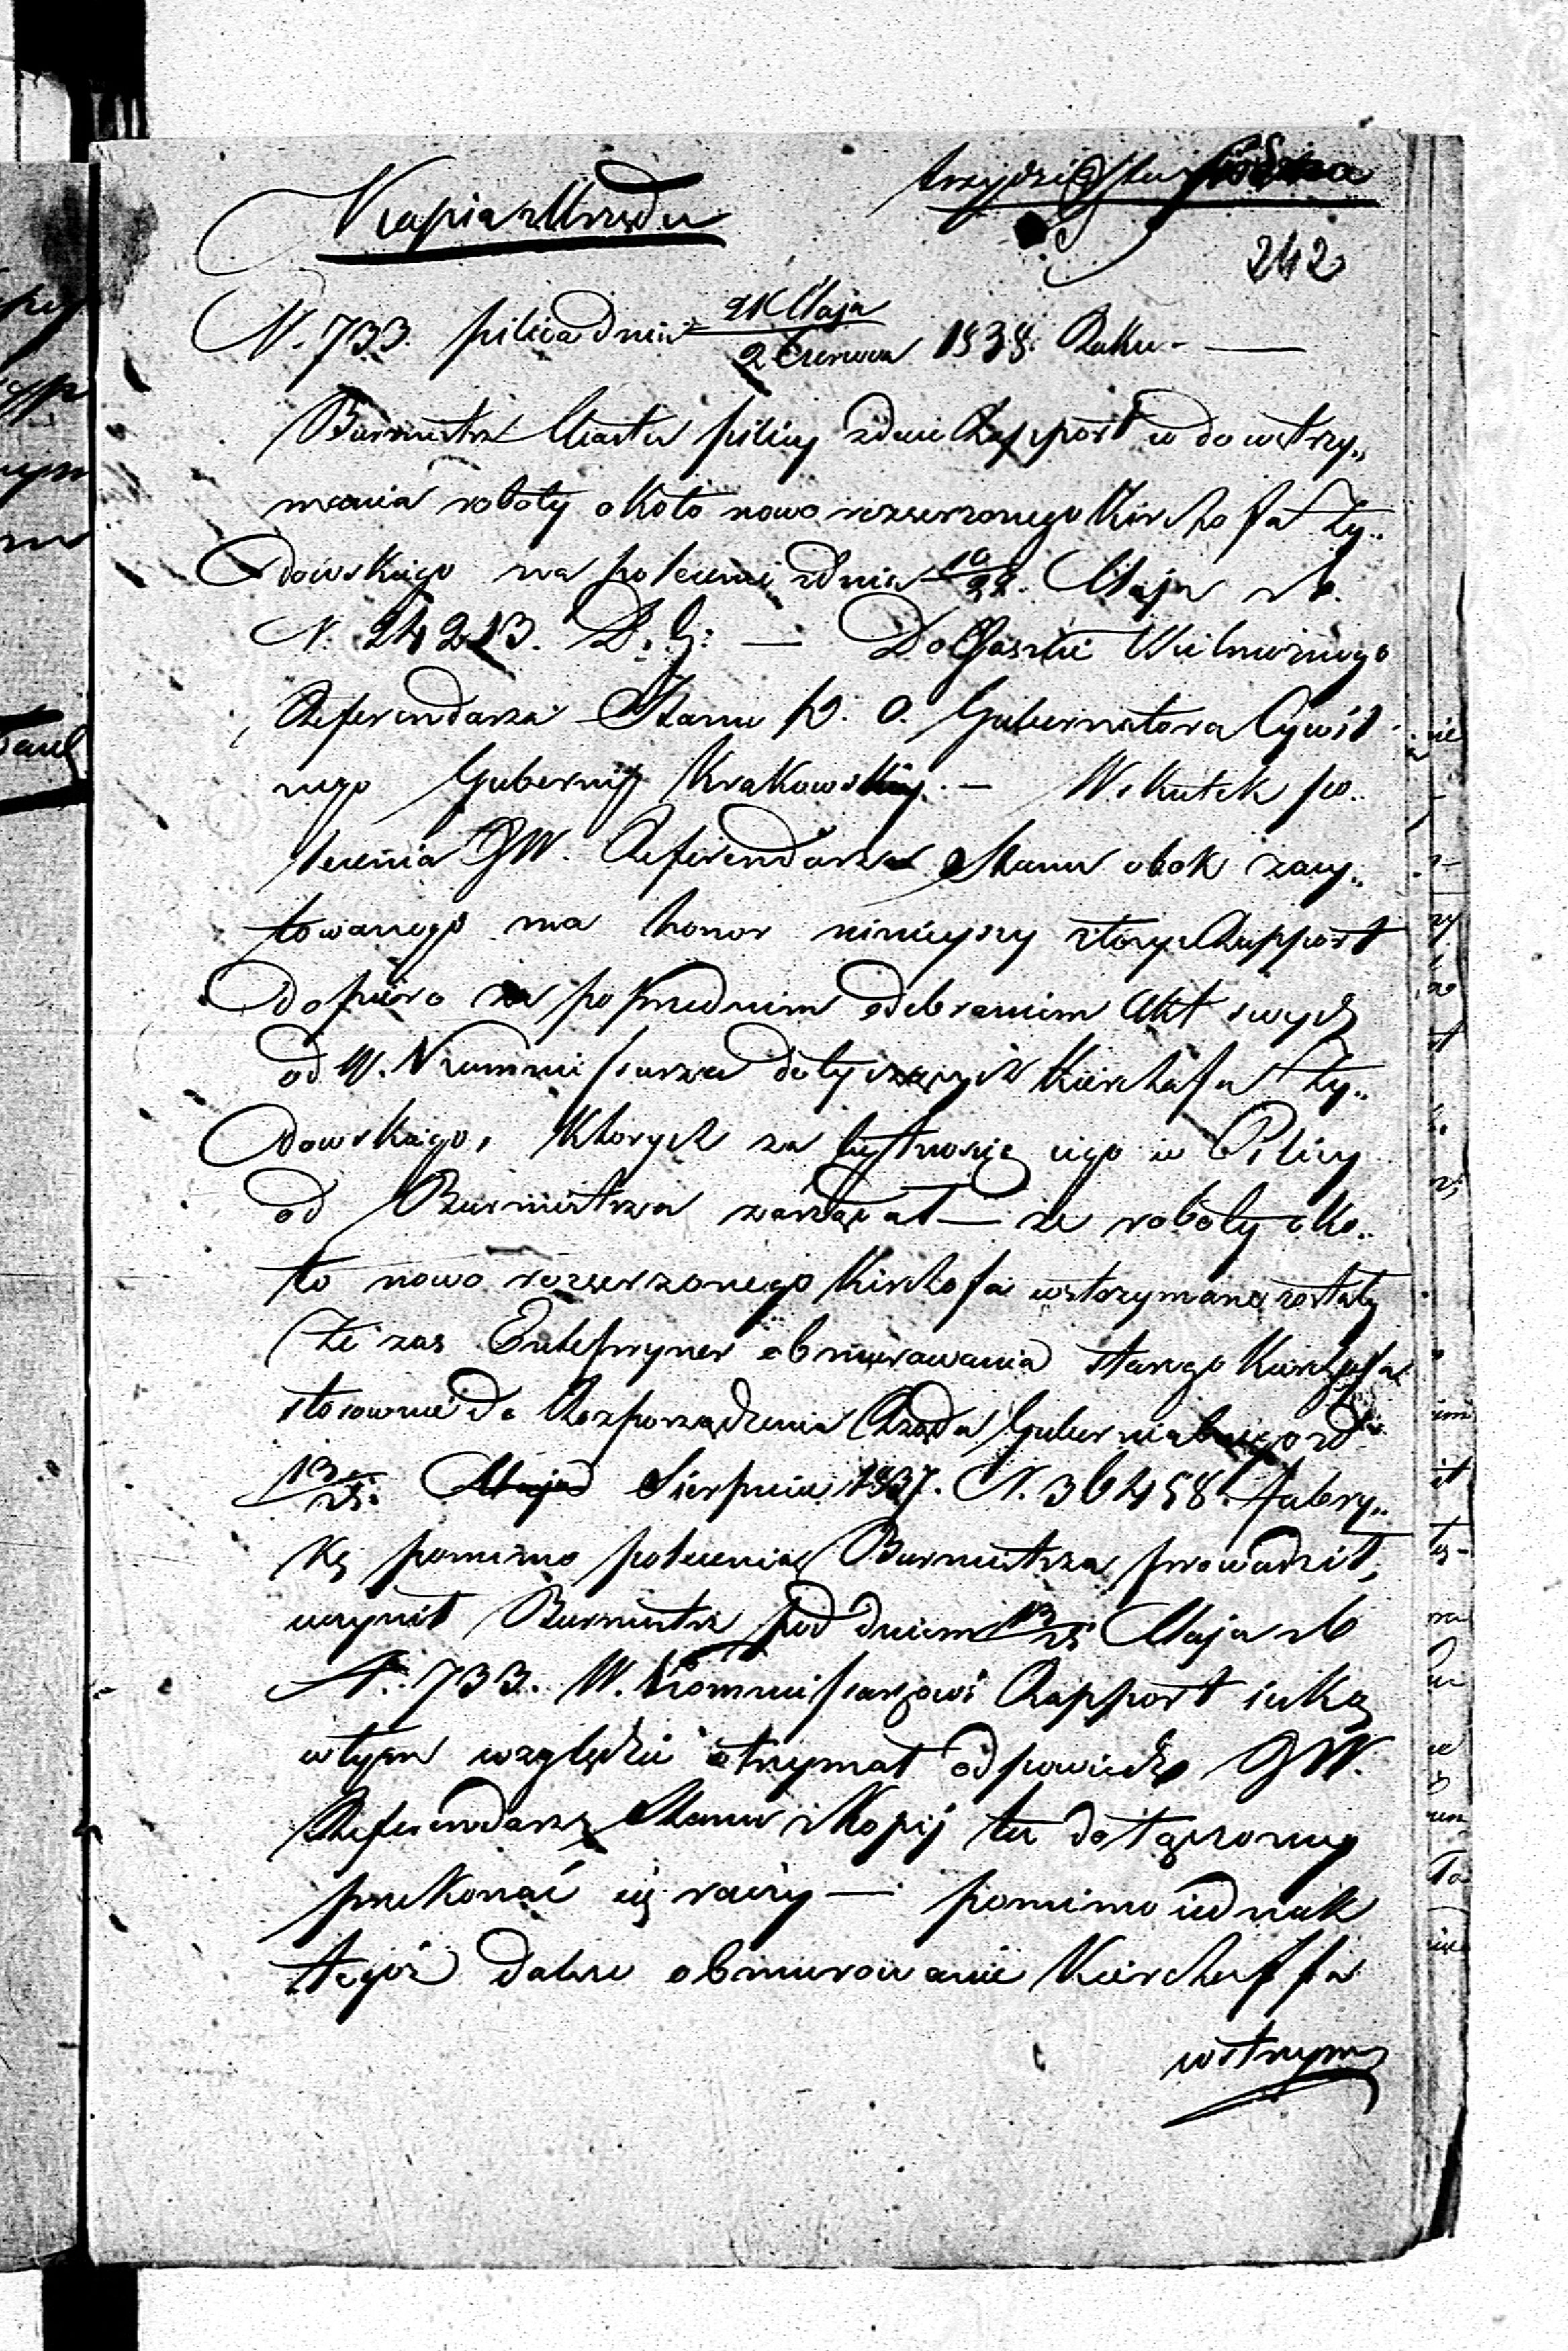 Kopia z Urzędu
trzydzieści
242
N. 733. Pilica dnia 21 Maja / 2 Czerwca 1838. Roku. —
Burmistrz Miasta Pilicy zdaie Rapport w do wstrzy„
mania roboty około nowo rozserzonego Kirchofa Ży„
dowskiego na polecenie z dnia 10/22. Maja r b.
N. 24213. D. G: — Do Jaśnie Wielmożnego
Referendarza Stanu P. O. Gubernatora Cywil
nego Gubernij Krakowskiej. — W skutek po„
lecenia JW. Referendarza Stanu obok zacy„
towanego ma honor ninieyszy złożyć Rapport
dopiero za poprzednim odebraniem Akt swych
od W. Kommissarza dotyczących Kirchofa Ży„
dowskiego, których za bytnoscią iego w Pilicy
od Burmistrza zarządał — że roboty oko„
ło nowo rozserzonego Kirchofa wstrzymane zostały
że zas Entepryner obmurowania starego Kirchofa
stosownie do Rozporządzenia Rządu Gubernialnego z d
13/25. Maja Sierpnia 1837. N. 36458. fabry„
kę pomimo polecenia Burmistrza prowadził,
uczynił Burmistrz pod dniem 13/25 Maja r b
N. 733. W. Kommissarzowi Rapport iaką
w tym względzie otrzymał odpowiedź JW.
Referendarz Stanu z Kopij tu dołączoney
przekonać się raczy — pomimo iednak
tegoż dalsze obmurowanie Kierchoffa
wstrzym